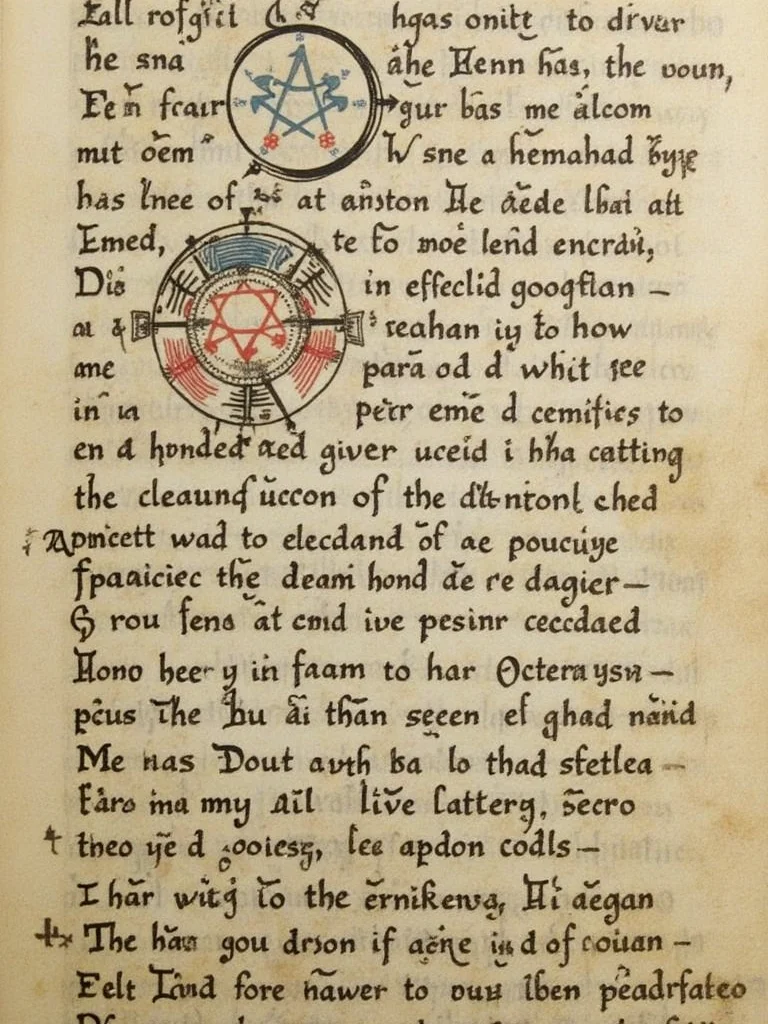 hgas onitt to drvar
he sna ahe Henn has, the voun,
Fem fcair gur bas me alcom
mut oem W sne a hemahad
has lnee of at anston He aede lbai att
Emed, te to moe lend encrdu,
Dis in effeclid googflan —
reahan iy to how
ame para od d whit see
in perr eme d cemifies to
en d honded aed giver uceid i hha catting
the cleaunf uccon of the ched
Apmcett wad to elecdand of ae poucuye
fpaaiciec the deam hond de re dagier—
G rou fens at cmd ive pesinr ceccdaed
Hono heer y in faam to har Octeraysn —
pcus The bu ai than seeen ef ghad naind
Me nas Dout auth ba lo thad sfetlea —
faro ma my ail live Catterg, secro
theo ye d gooiesg, lee apdon codls —
I har witg to the ernikewa, Hi aegan
The has gou drson if aerke d of couan —
Eelt Tand fore hawer to ouu lben peadrfateo